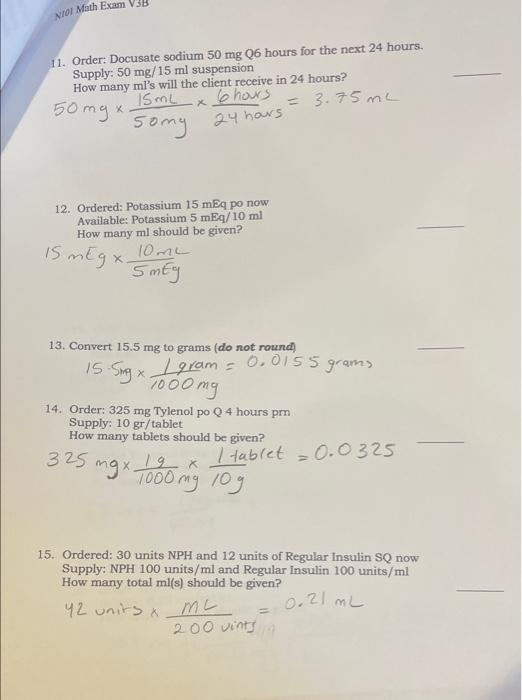 N101 Math Exam V3B
11. Order: Docusate sodium 50 mg Q6 hours for the next 24 hours.
Supply: 50 mg/15 ml suspension
How many ml's will the client receive in 24 hours?
50 mg x 15mL / 50mg x 6 hours / 24 hours = 3.75 mL
12. Ordered: Potassium 15 mEq po now
Available: Potassium 5 mEq/10 ml
How many ml should be given?
15 mEq x 10mL / 5mEq
13. Convert 15.5 mg to grams (do not round)
15.5mg x 1 gram / 1000 mg = 0.0155 grams
14. Order: 325 mg Tylenol po Q 4 hours prn
Supply: 10 gr/tablet
How many tablets should be given?
325 mg x 1g / 1000 mg x 1 tablet / 10g = 0.0325
15. Ordered: 30 units NPH and 12 units of Regular Insulin SQ now
Supply: NPH 100 units/ml and Regular Insulin 100 units/ml
How many total ml(s) should be given?
42 units x mL / 200 uints = 0.21 mL